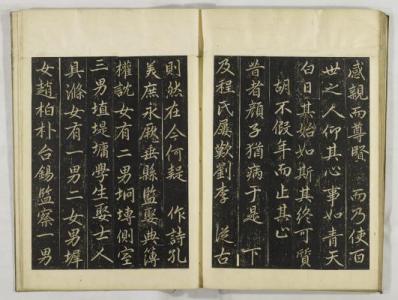 感親而尊賢 而乃使百
世之人仰其心事如青天
白日其始如斯其終可質
胡不假年而止其止
昔者顏子猶病于是 下
及程氏屢歎劉李 從古
則然在今何疑 作詩孔
美庶永厥垂縣監娶典簿
權女有二男坰塼側室
三男埴堤墉學生娶士人
具滌女有一男二女男墀
女趙柏朴台錫監察一男